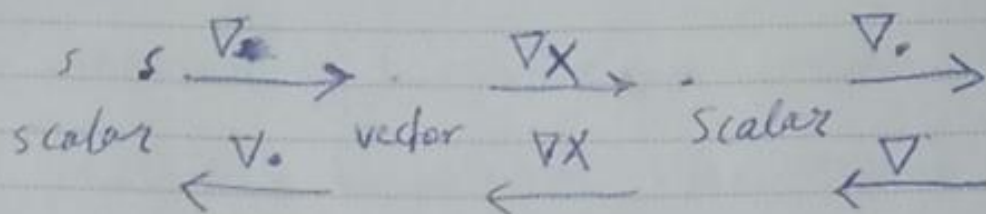 s s ∇ → · ∇× → · ∇· →
scalar ∇· ← vector ∇× ← scalar ∇ ←